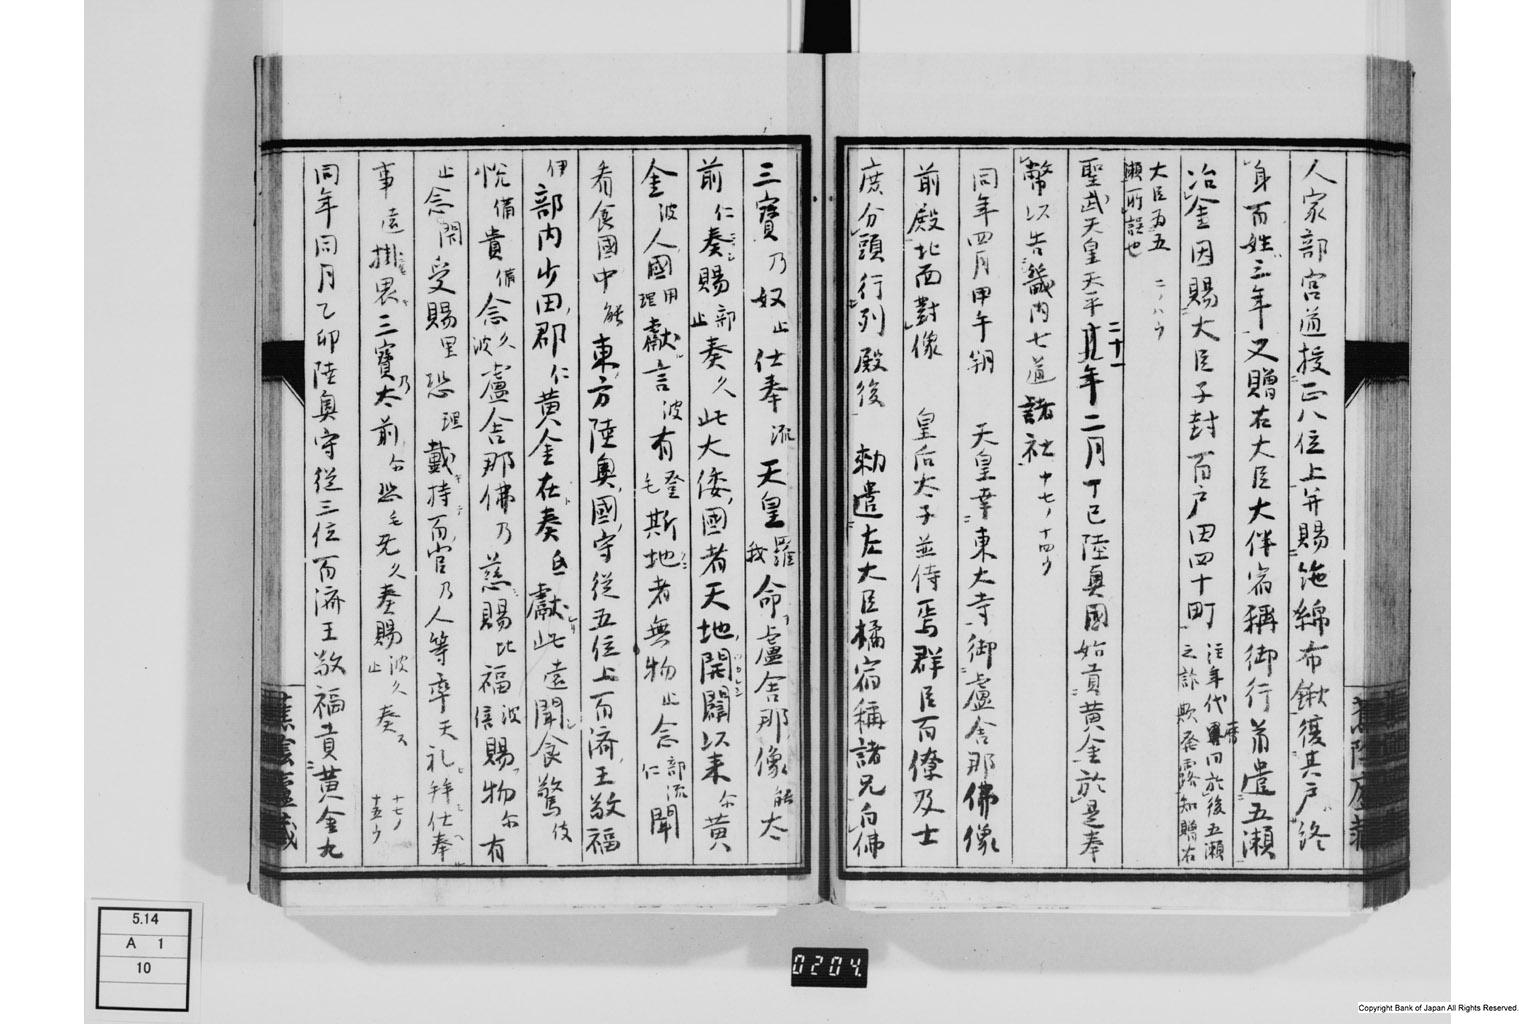 人家部宮道授正八位上并賜絁綿布鍬復其戸終
身百姓三年又贈右大臣大伴宿禰御行首遣五瀬
冶金因賜大臣子封百戸田四十町 注年代曆曰於後五瀬
之詐欺發露知贈右
大臣為五
瀬所誤也 二ノ八ウ
聖武天皇天平二十一年二月丁巳陸奥國始貢黄金於是奉
幣以告畿内七道諸社 十七ノ十四ウ
同年四月甲午朔 天皇幸東大寺御盧舎那佛像
前殿北面對像 皇后太子並侍焉群臣百僚及士
庶分頭行列殿後 勅遣左大臣橘宿禰諸兄白佛
三寳乃奴止仕奉流天皇羅我命盧舎那像能太
前仁奏賜部止奏久此大倭國者天地開闢以来尓黄
金波人國用理獻言波有登毛斯地者無物止念部流仁聞
看食國中能東方陸奥國守從五位上百濟王敬福
伊部内少田郡仁黄金在奏弖獻此遠聞食驚伎
悦備貴備念久波盧舎那佛乃慈賜比福波倍賜物尓有
止念閇受賜里恐理戴持而官乃人等率天礼拜仕奉
事遠掛畏三寳乃太前尓恐毛无久奏賜波久止奏 十七ノ
十五ウ
同年同月乙卯陸奥守從三位百濟王敬福貢黄金九
5.14
A 1
10
0204.
Copyright Bank of Japan All Rights Reserved.